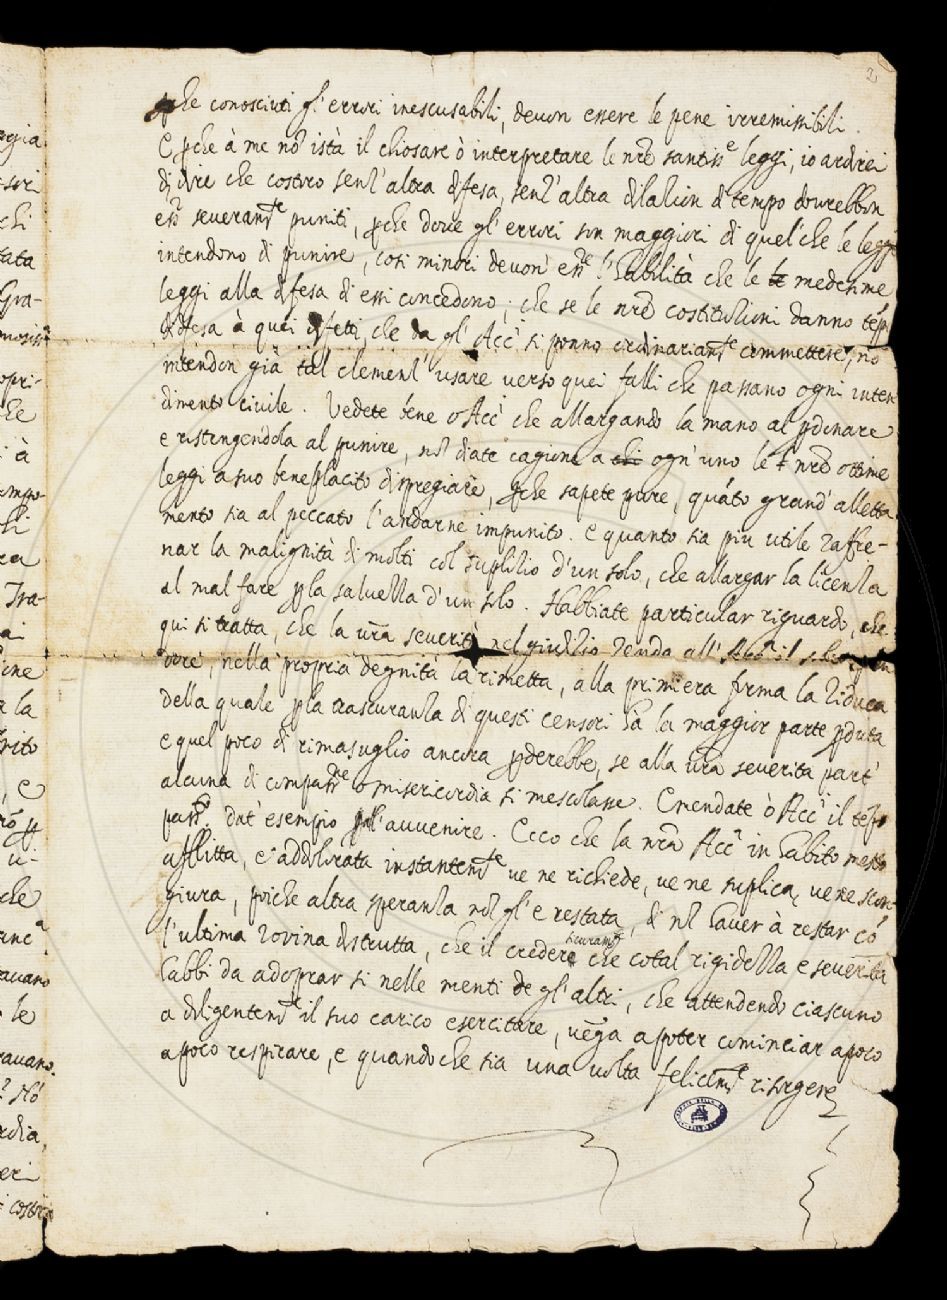 2
pche conosciuti gl'errori inescusabili, devon essere le pene irremissibili.
E pche à me nõ istà il chiosare ò interpretare le nrẽ santissᵉ leggi, io ardirei
di dire che costoro senz'altra difesa, senz'altra dilation di tempo dourebbon
essʳ severamᵗᵉ puniti, pche doue gl'errori son maggiori di quel che le leggi
intendono di punire, cosi minori devon' essʳᵉ l'habilità che le medesime
leggi alla difesa di essi concedono; che se le nrẽ costitutioni danno tẽpo
difesa à quei difetti, che da gl'Accⁱ si ponno ordinariamᵗᵉ commettere, nõ
intendon già tal clement' usare verso quei falli che passano ogni inten
dimento civile. Vedete bene o Accⁱ che allargando la mano al pdonare
e ristringendola al punire, nõ diate cagione a ogn'uno le nrẽ ottime
leggi a suo beneplacito dispregiare, pche sapete pure, quãto grand'alletta
mento sia al peccato l'andarne impunito. e quanto sia piu utile raffre-
nar la malignità di molti col suplitio d'un solo, che allargar la licenza
al mal fare p la salvezza d'un solo. Habbiate particular riguardo, che
qui si tratta, che la vrã severità nel giuditio renda all'
nella propria degnità la rimetta, alla primiera forma la riduca
della quale p la trascuranza di questi censori ha la maggior parte pduta
e quel poco di rimasuglio ancora pderebbe, se alla vrã severita part'
alcuna di compassⁿᵉ o misericordia si mescolasse. Emendate ò Accⁱ il tẽpo
passᵗᵒ. dat' esempio p l'avvenire. Ecco che la nrã Accᵃ in habito mesto
afflitta, e addolorata instantemᵗᵉ ve ne richiede, ve ne suplica, ve ne scon
giura, poiche altra speranza nõ gl'e restata, di nõ haver à restar cõ
l'ultima rovina distrutta, che il credere sicuramᵗᵉ che cotal rigidezza e severita
habbi da adoprar si nelle menti de gl'altri, che attendendo ciascuno
a diligentemᵗᵉ il suo carico esercitare, vẽga a poter cominciar a poco
a poco respirare, e quandoche sia una volta felicemᵗᵉ risorgere